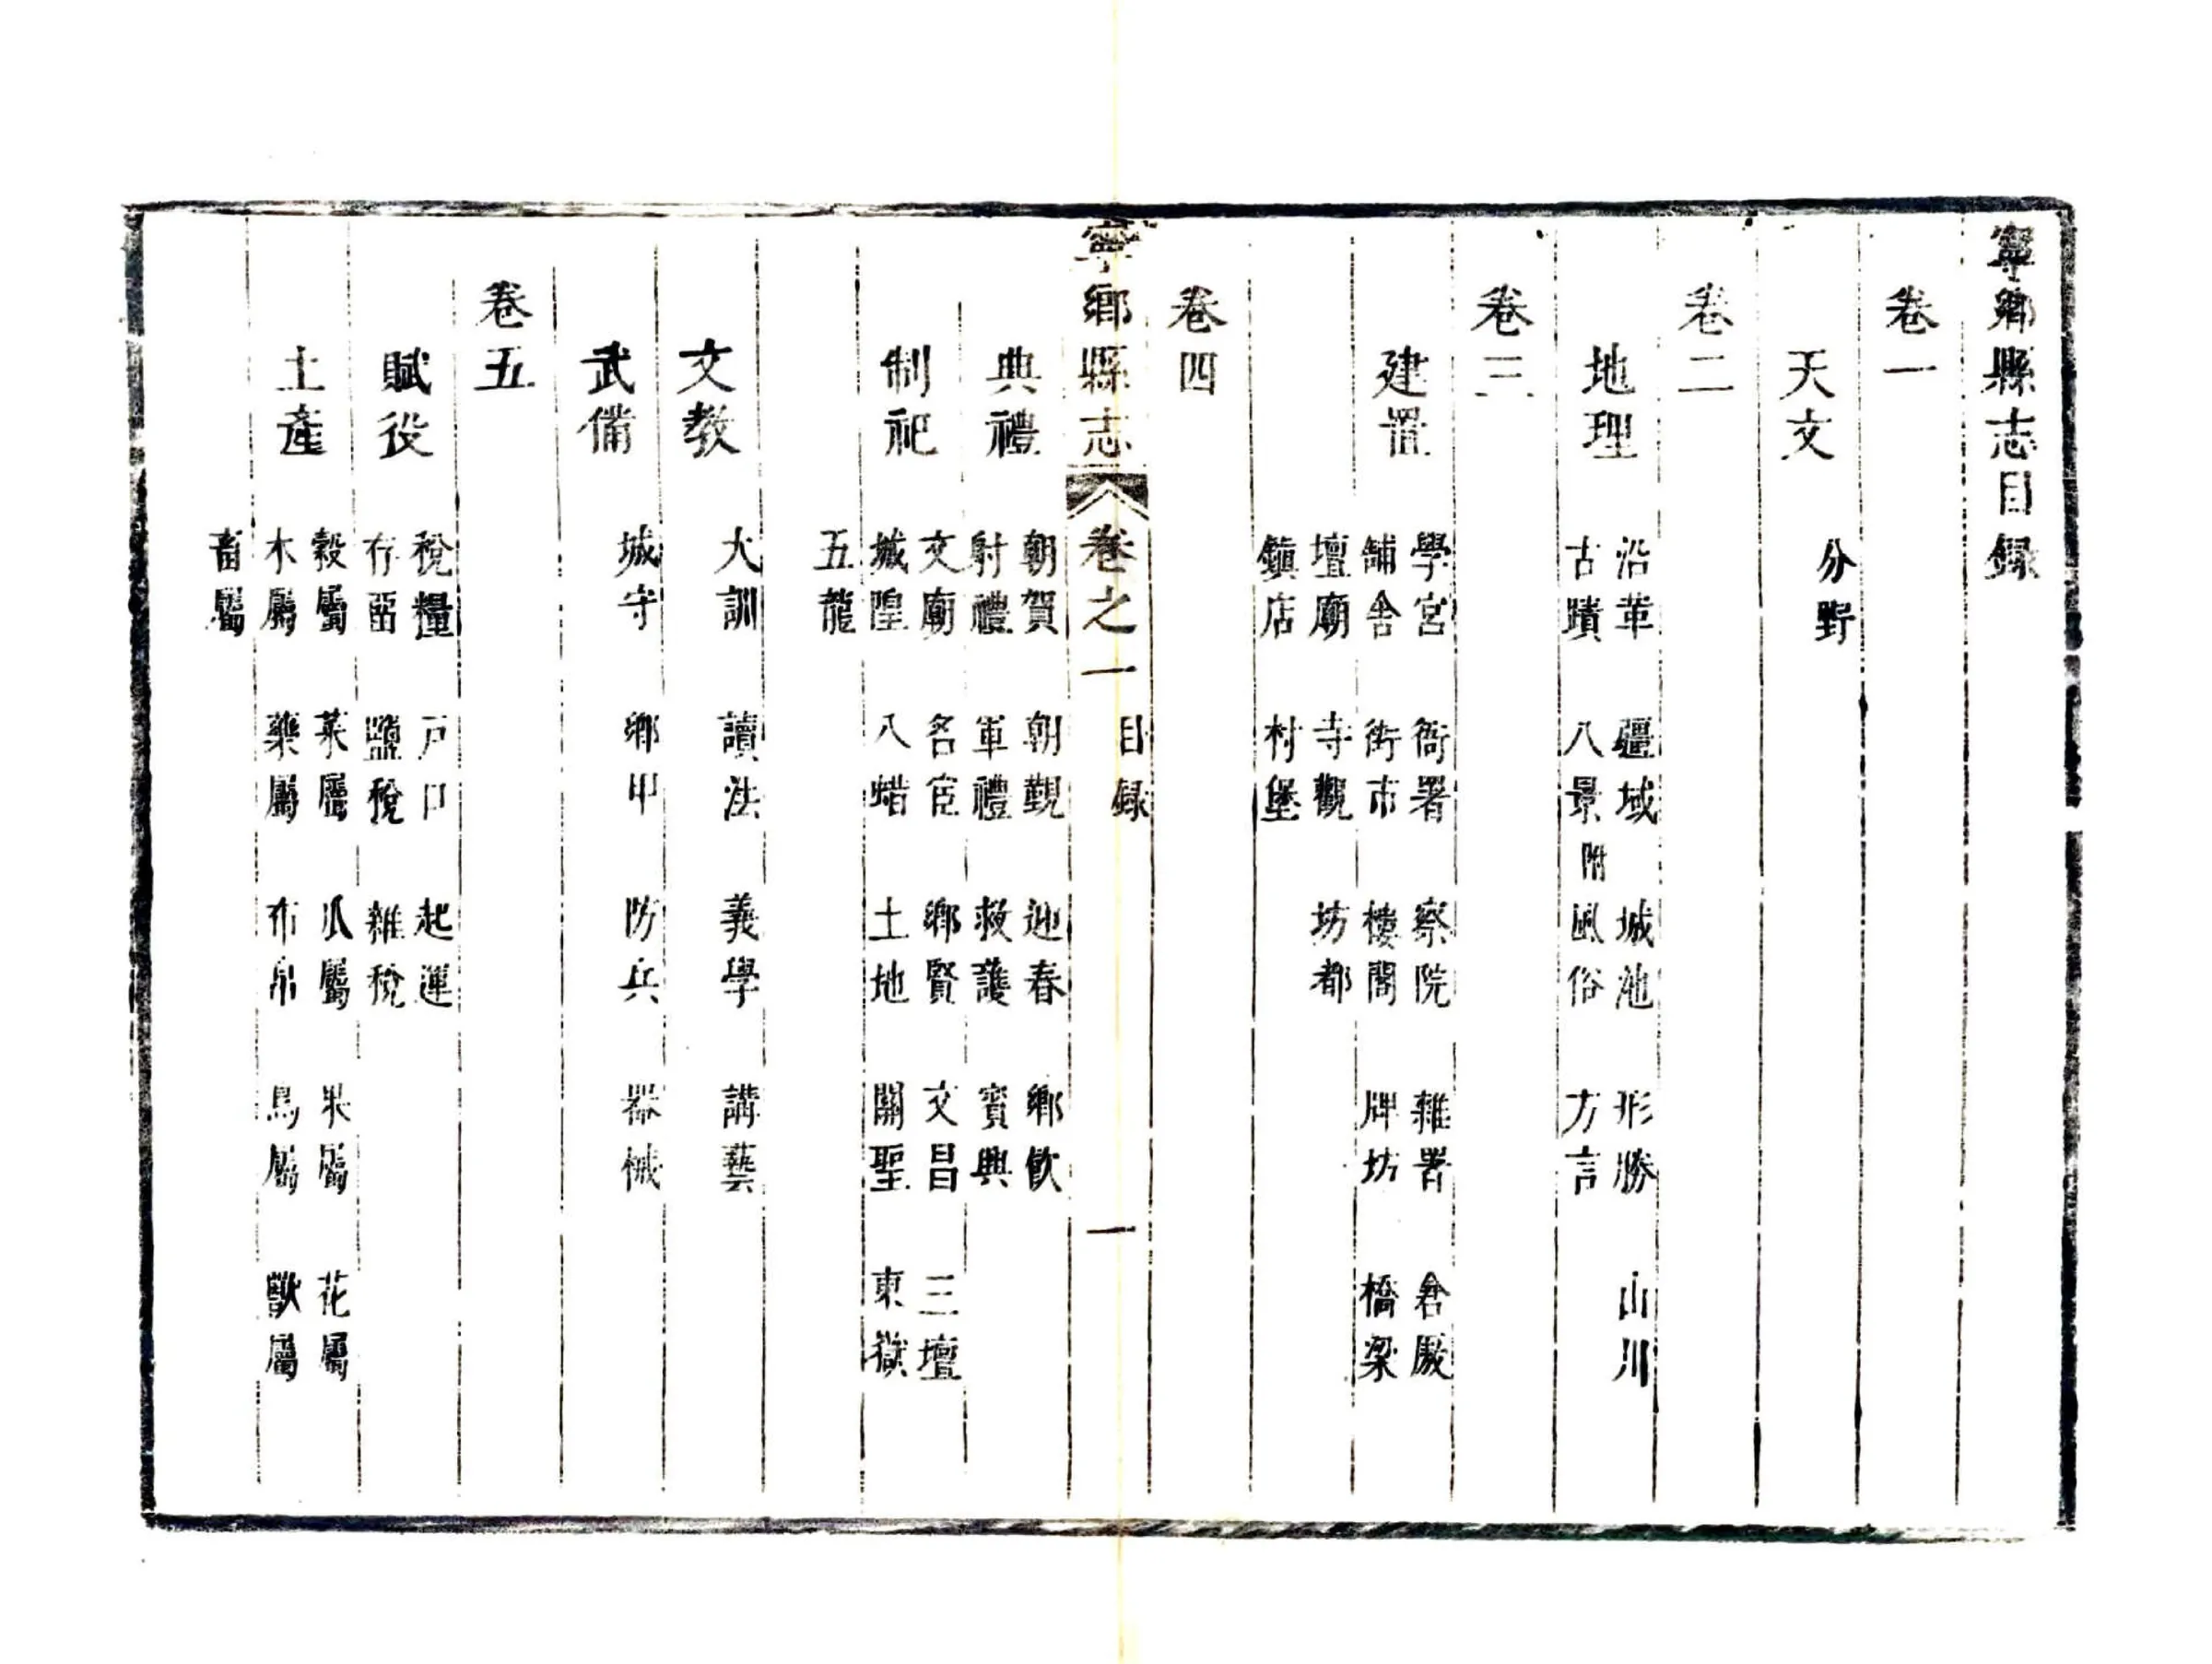 寧鄉縣志目録
卷一
天文
分野
卷二
地理
沿革 疆域 城池 形勝 山川
古蹟 八景 附風俗 方言
卷三
建置
學宮 衙署 察院 雜署 倉厫
舖舍 街市 樓閣 牌坊 橋梁
壇廟 寺觀 坊都
鎮店 村堡
卷四
寧鄉縣志 卷之一 目録 一
典禮
朝賀 朝覲 迎春 鄉飲
射禮 軍禮 救護 賓興
制祀
文廟 名宦 鄉賢 文昌 三壇
城隍 八蜡 土地 關聖 東嶽
五龍
文教
大訓 讀法 義學 講藝
武備
城守 鄉甲 防兵 器械
卷五
賦役
稅糧 戸口 起運
存留 鹽稅 雜稅
土產
穀屬 菜屬 瓜屬 果屬 花屬
木屬 藥屬 布帛 鳥屬 獸屬
畜屬